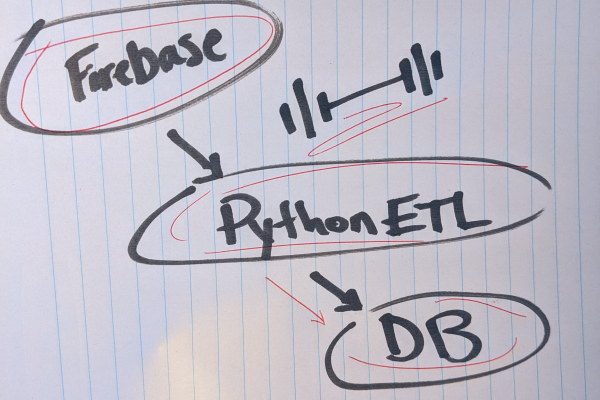 Firebase
Python ETL
DB